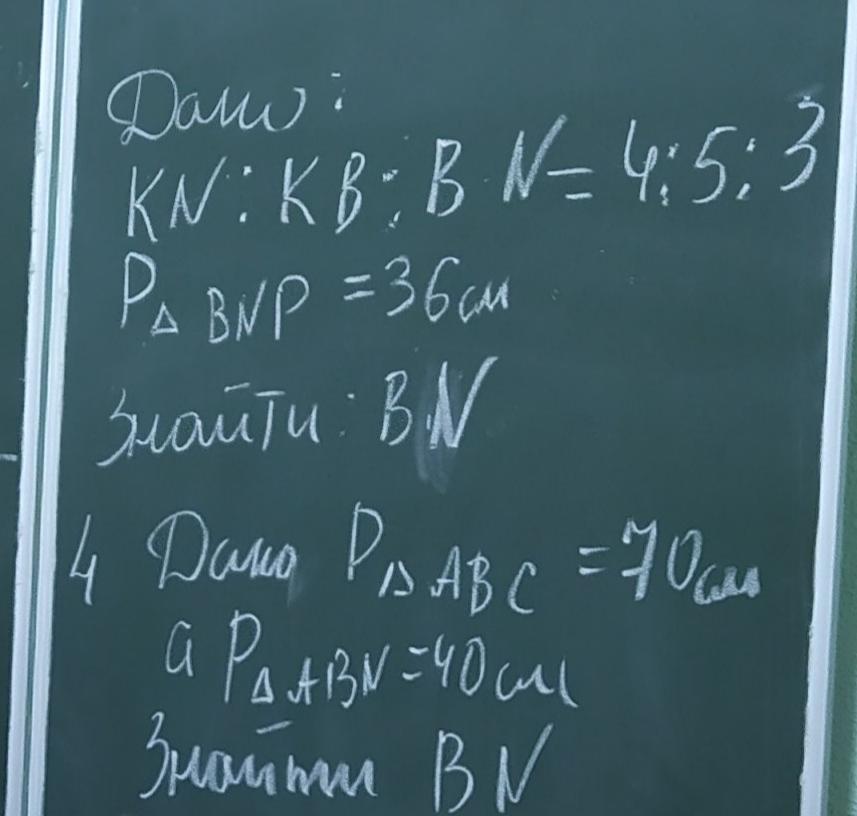 Дано:
KN:KB:BN=4:5:3
P△BNP=36см
Знайти: BN
4 Дано P△ABC=70см
а P△ABN=40см
Знайти BN